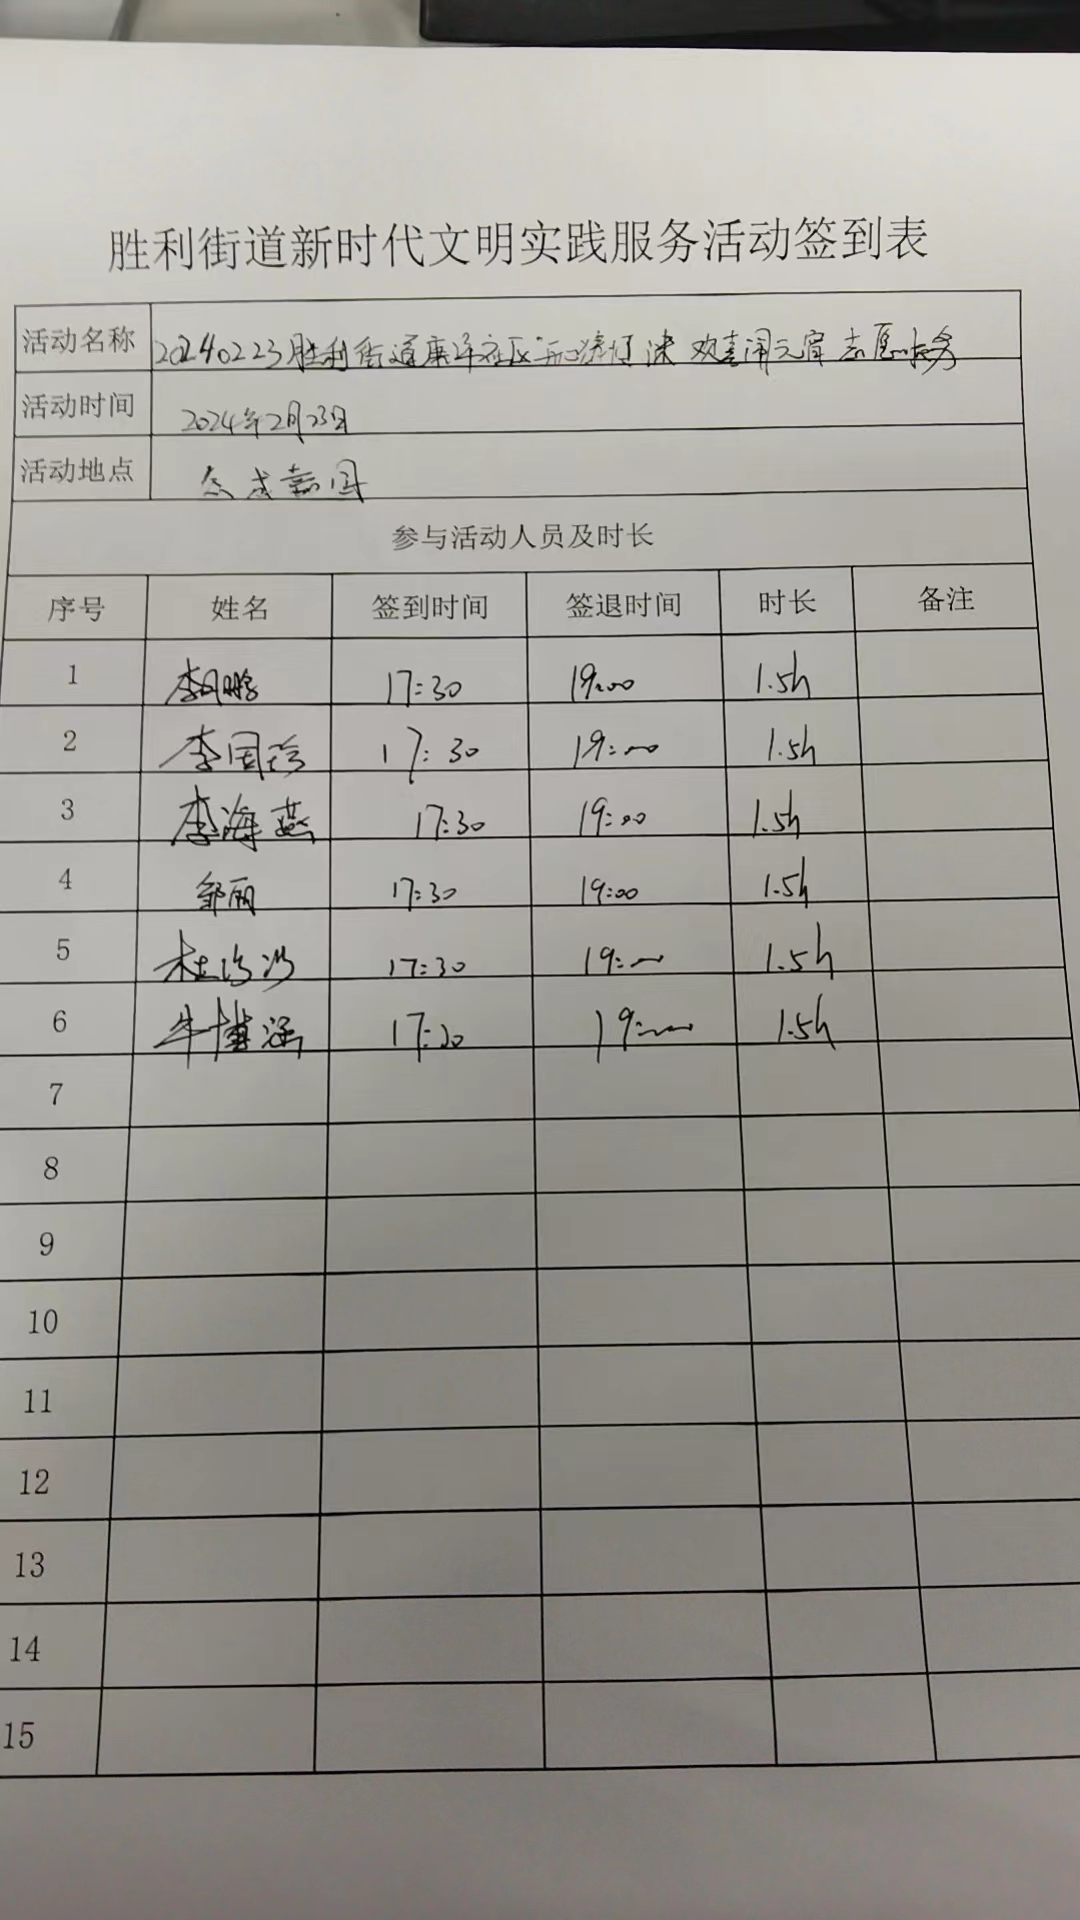 胜利街道新时代文明实践服务活动签到表
活动名称 20240223胜利街道康泽社区"开心猜灯谜 欢喜闹元宵"志愿服务
活动时间 2024年2月23日
活动地点 嘉园
参与活动人员及时长
序号 姓名 签到时间 签退时间 时长 备注
1 李 鹏 17:30 19:00 1.5h
2 李国珍 17:30 19:00 1.5h
3 李海燕 17:30 19:00 1.5h
4 邹丽 17:30 19:00 1.5h
5 杜 17:30 19:00 1.5h
6 牛博涵 17:30 19:00 1.5h
7
8
9
10
11
12
13
14
15